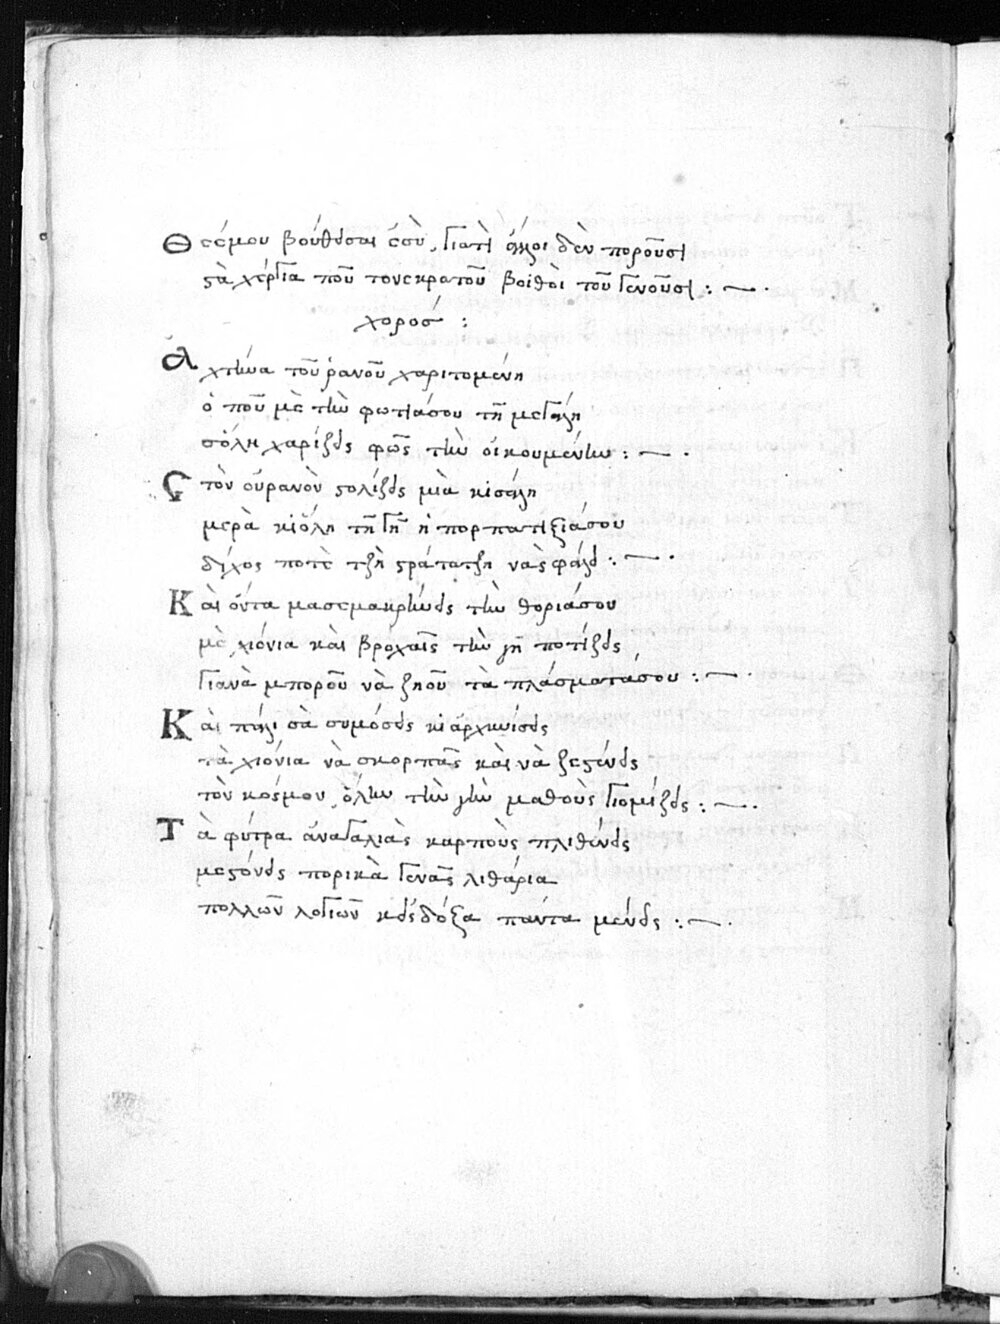 Θεέμου βούθησαι ἐσὺ, γιατὶ ἄλλοι δὲν ποροῦσι
ςὰ χέργια ποῦ τονεκρατοῦ βοίθοι τοῦ γενοῦσι :~.
χορος :
Ἀχτίνα τοῦρανοῦ χαριτομένη
ὁ ποῦ μὲ τὴν φωτιάσου τῆ μεγάλη
σόλη χαρίζεις φῶς τὴν οἰκουμένην :~.
Στὸν οὐρανὸν ςολίζεις μιὰ κισάλη
μερὰ κιόλη τῆ γῆ ἡ πορπατιξιάσου
δίχος ποτὲ τζὴ ςράτατζη νὰ σφάλει :~.
Καὶ ὄντα μασεμακρύνεις τὴν θοριάσου
μὲ χιόνια καὶ βροχαῖς τὴν γη ποτίζεις
γιανὰ μποροῦ νὰ ζηοῦ τὰ πλάσματάσου :~.
Καὶ πάλι σὰ συμόσεις κι ἀρχινίσεις
τὰ χιόνια νὰ σκορπᾶς καὶ νὰ ζεςένεις
τὸν κόσμον ὅλην τὴν γὴν μαθοὺς γιομίζεις :~.
Τὰ φύτρα ἀναγαλιὰς καρποὺς πλιθένεις
μεςόνεις πορικὰ γενᾶς λιθάρια
πολλῶν λογιῶν κ'εἰς δόξα πάντα μένεις :~.